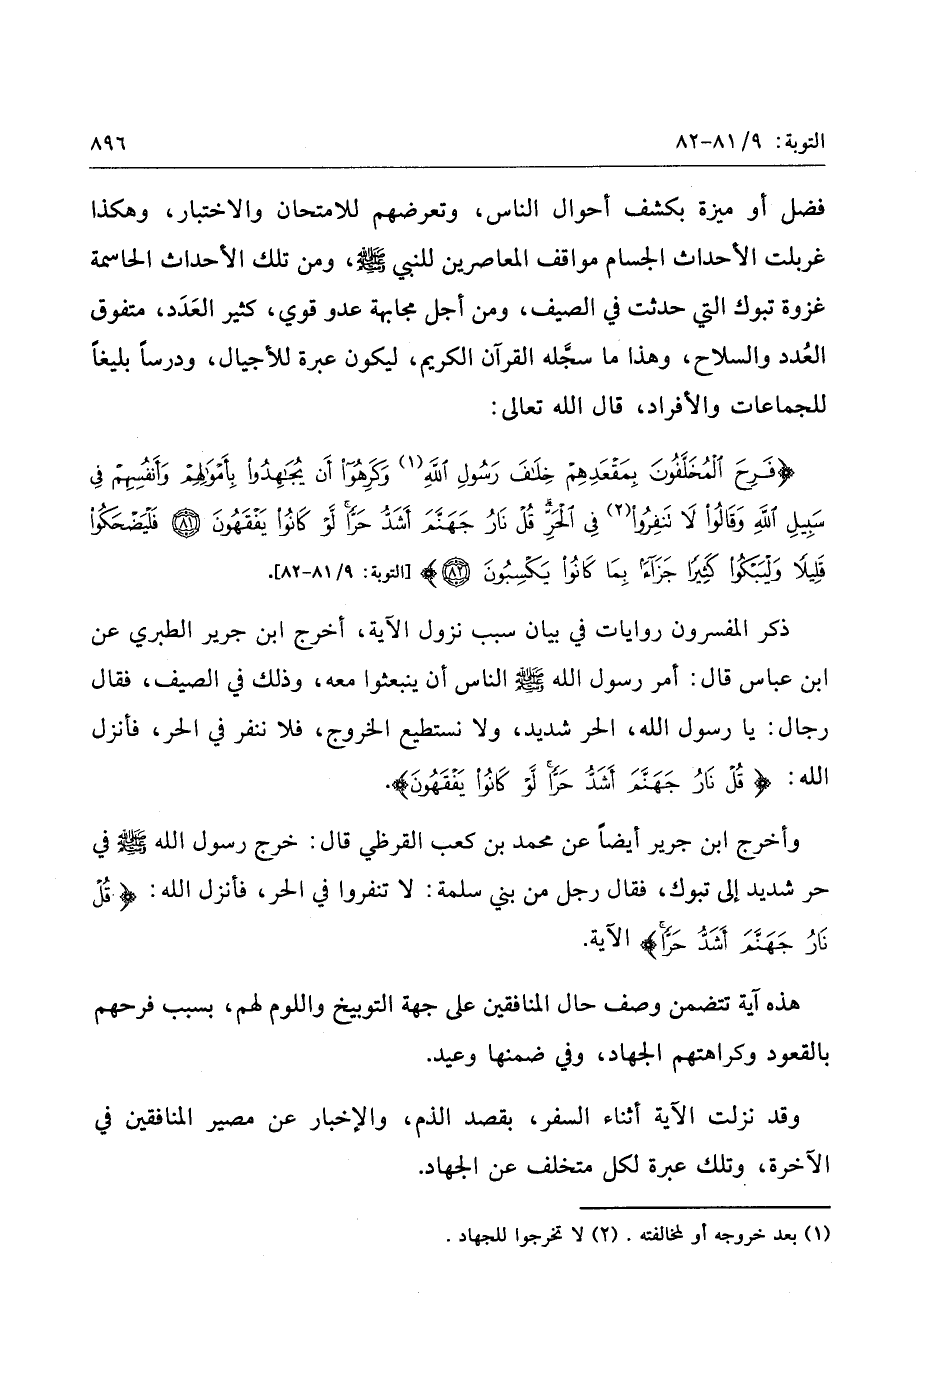 التوبة: ٩/ ٨١-٨٢
٨٩٦
فضل أو ميزة بكشف أحوال الناس، وتعرضهم للامتحان والاختبار، وهكذا
غربلت الأحداث الجسام مواقف المعاصرين للنبي ﷺ، ومن تلك الأحداث الحاسمة
غزوة تبوك التي حدثت في الصيف، ومن أجل مجابهة عدو قوي، كثير العَدَد، متفوق
العُدد والسلاح، وهذا ما سجَّله القرآن الكريم، ليكون عبرة للأجيال، ودرساً بليغاً
للجماعات والأفراد، قال الله تعالى:
﴿فَرِحَ ٱلْمُخَلَّفُونَ بِمَقْعَدِهِمْ خِلَٰفَ رَسُولِ ٱللَّهِ(١) وَكَرِهُوٓا۟ أَن يُجَٰهِدُوا۟ بِأَمْوَٰلِهِمْ وَأَنفُسِهِمْ فِى
سَبِيلِ ٱللَّهِ وَقَالُوا۟ لَا تَنفِرُوا۟(٢) فِى ٱلْحَرِّ ۗ قُلْ نَارُ جَهَنَّمَ أَشَدُّ حَرًّا ۚ لَّوْ كَانُوا۟ يَفْقَهُونَ ٨١ فَلْيَضْحَكُوا۟
قَلِيلًا وَلْيَبْكُوا۟ كَثِيرًا جَزَآءًۢ بِمَا كَانُوا۟ يَكْسِبُونَ ٨٢﴾ [التوبة: ٩/ ٨١-٨٢].
ذكر المفسرون روايات في بيان سبب نزول الآية، أخرج ابن جرير الطبري عن
ابن عباس قال: أمر رسول الله ﷺ الناس أن ينبعثوا معه، وذلك في الصيف، فقال
رجال: يا رسول الله، الحر شديد، ولا نستطيع الخروج، فلا ننفر في الحر، فأنزل
الله: ﴿قُلْ نَارُ جَهَنَّمَ أَشَدُّ حَرًّا ۚ لَّوْ كَانُوا۟ يَفْقَهُونَ﴾.
وأخرج ابن جرير أيضاً عن محمد بن كعب القرظي قال: خرج رسول الله ﷺ في
حر شديد إلى تبوك، فقال رجل من بني سلمة: لا تنفروا في الحر، فأنزل الله: ﴿قُلْ
نَارُ جَهَنَّمَ أَشَدُّ حَرًّا ۚ﴾ الآية.
هذه آية تتضمن وصف حال المنافقين على جهة التوبيخ واللوم لهم، بسبب فرحهم
بالقعود وكراهتهم الجهاد، وفي ضمنها وعيد.
وقد نزلت الآية أثناء السفر، بقصد الذم، والإخبار عن مصير المنافقين في
الآخرة، وتلك عبرة لكل متخلف عن الجهاد.
(١) بعد خروجه أو لمخالفته . (٢) لا تخرجوا للجهاد .